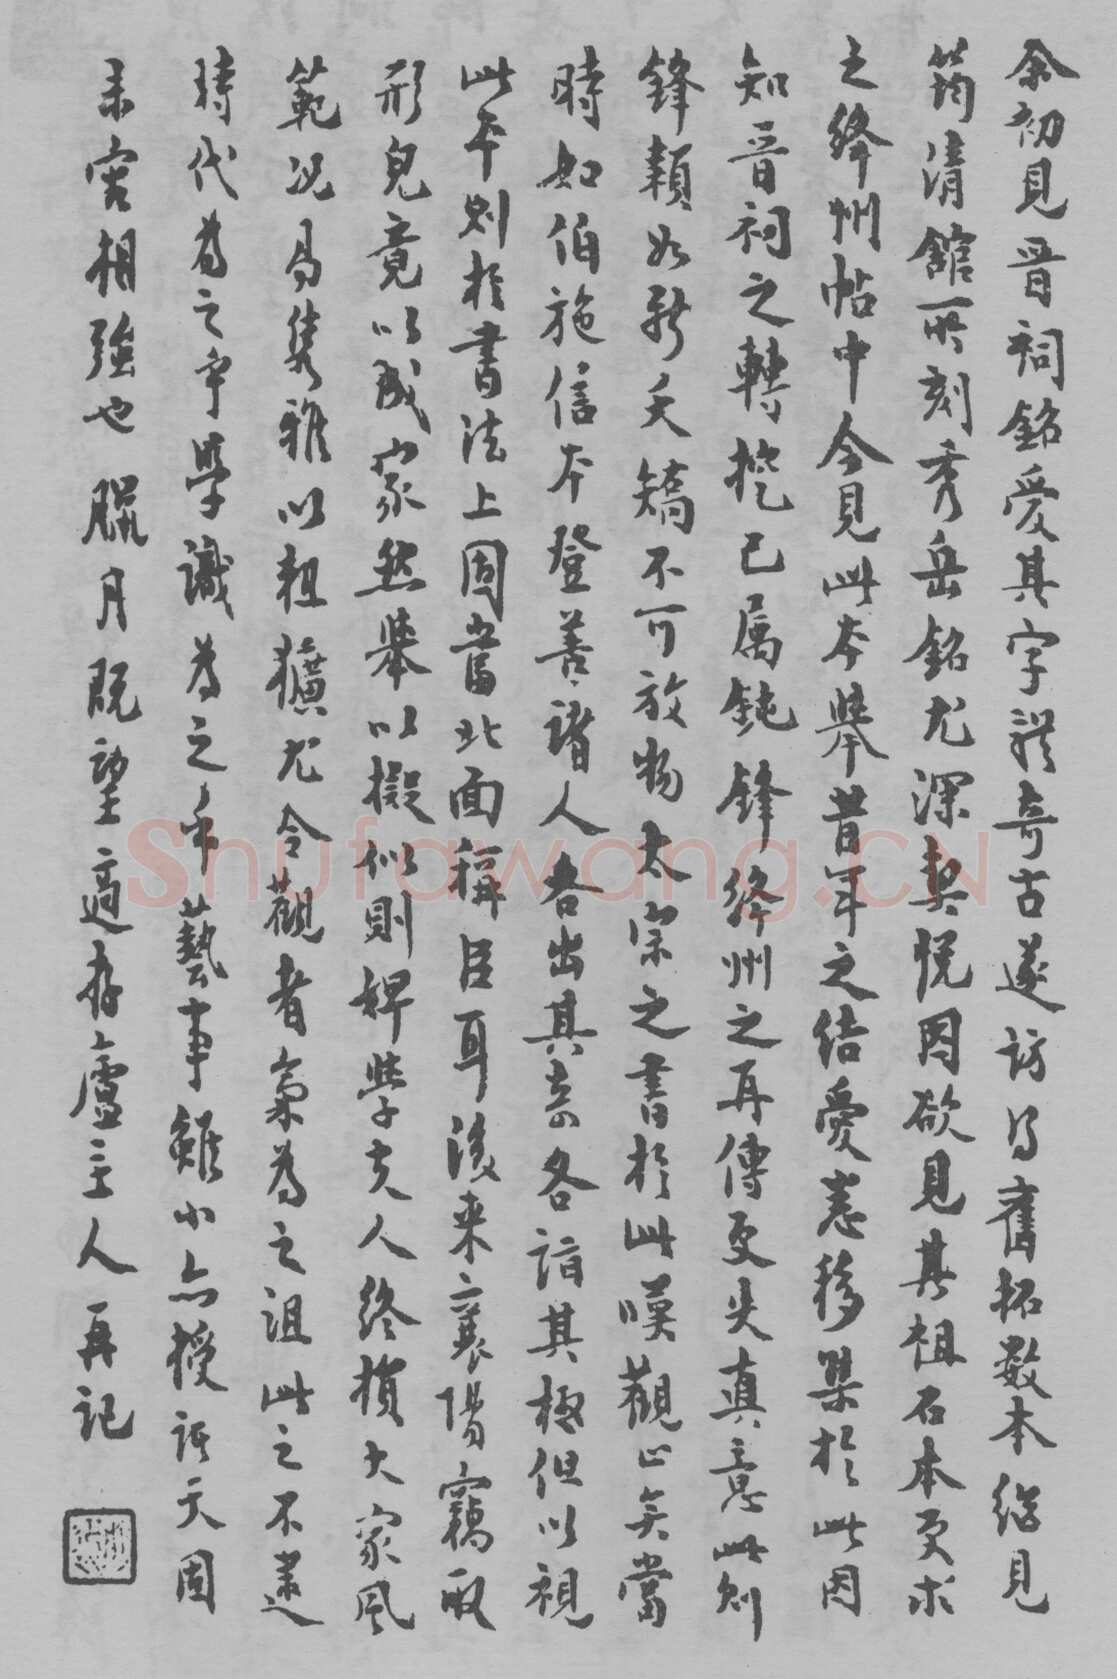 余初見晉祠銘愛其字體奇古遂訪得舊拓數本繼見
筠清館所刻秀岳銘尤深契悦因欲見其祖石本更求
之絳州帖中今見此本舉昔年之結愛悉移集於此因
知晉祠之轉挖已属鈍鋒絳州之再傳更失真意此則
鋒穎如新夭矯不可放物太宗之書於此嘆觀止矣當
時如伯施信本登善諸人各出其奇各詣其極但以視
此本則於書法上固當北面稱臣耳後来襄陽竊取
形皃竟以成家然舉以擬似則婢學夫人終損大家風
範况易隽雅以粗獷尤令觀者氣為之沮此之不逮
時代為之乎學識為之乎藝事雖小亦授諸天固
未容相強也臘月既望適存廬主人再記
Shufawang.CN